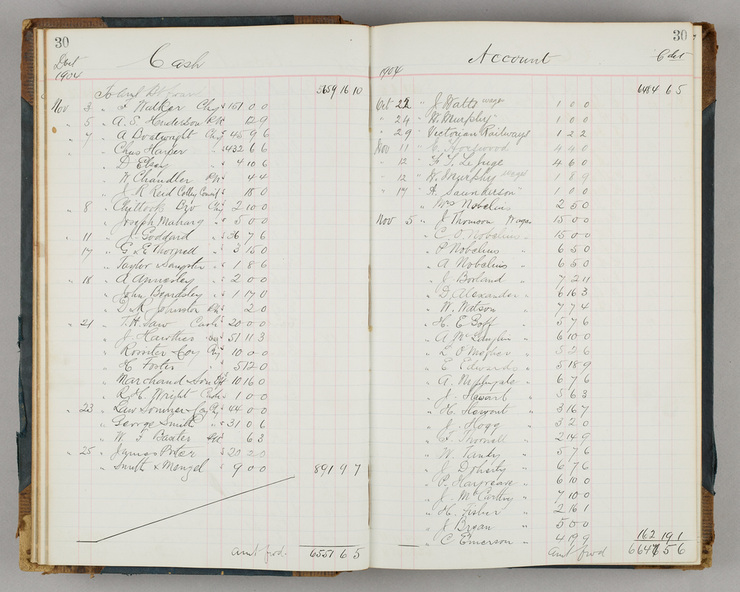 30
Cash
1904
Nov 3 " Walker 151 0 0
" 5 " A. S. Henderson 12 9
" 7 " A Boatwright 45 9 6
" Chas Harper 1432 6 6
" D Elsey 4 10 6
" W Chandler 4 4
" J. K Reid 18 0
" 8 " Chittock Bro 2 10 0
" Joseph 5 0 0
" 11 " Goddard 36 7 6
" 17 " G & E Thornell 3 15 0
" Taylor & Sangster 1 8 6
" 18 " A Annesley 2 0 0
" John Beardsley 1 17 0
" D. R Johnston 2 0
" 21 " T. H. Law Cash 20 0 0
" J Hawthor 51 11 3
" 10 0 0
" H Foster 5 12 0
" Marchand & Son 10 16 0
" R H Wright Cash 1 0 0
" 23 " Law Somner 44 0 0
" George Smith 31 0 6
" W. J Baxter 6 3
" 25 " James Peter 20 2 0
" Smith & Menzel 9 0 0 891 9 7
amt fwd. 6551 6 5
30
Account
1904
6484 6 5
Oct 22 " J. Watts wages 1 0 0
" 24 " W. Murphy " 1 0 0
" 29 " Victorian Railways 1 2 2
Nov 11 " 4 4 0
" 12 " 4 6 0
" 12 " W. Murphy wages 1 8 9
" 17 " A. Saunderson 1 0 0
" Mrs Nobelius 2 6 0
Nov 5 " J Thomson Wages 15 0 0
" C. O. Nobelius " 15 0 0
" P Nobelius " 6 5 0
" A Nobelius " 6 5 0
" J Borland " 7 2 11
" D. Alexander " 6 16 3
" W. Watson " 7 7 4
" H. E Goff " 5 7 6
" A McLauglin " 6 10 0
" L. O Meagher " 5 2 6
" E Edwards " 5 18 9
" A. Nightingale " 6 7 6
" J. Stewart " 5 6 3
" H. Stewart " 3 16 7
" J. Hogg " 3 2 0
" E Thornell " 2 14 9
" W. Tandy " 5 7 6
" J. Doherty " 6 7 6
" P. Hargreave " 6 10 0
" J. McCarthy " 7 10 0
" H. Fisher " 2 16 1
" J Bryan " 5 0 0
" C Emerson " 4 19 9 162 19 1
amt fwd 6647 5 6